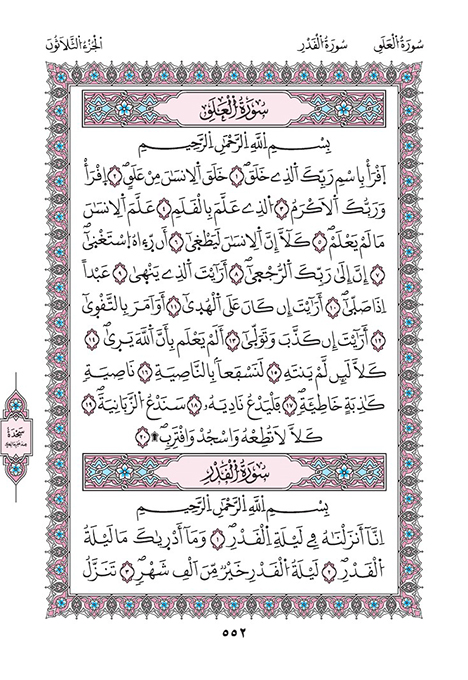 سُورَةُ الْعَلَقِ سُورَةُ الْقَدْرِ الجُزْءُ الثَّلَاثُونَ
سُورَةُ الْعَلَقِ
بِسْمِ اللَّهِ الرَّحْمَٰنِ الرَّحِيمِ
اِقْرَأْ بِاسْمِ رَبِّكَ الَّذِے خَلَقَۖ ١ خَلَقَ اَلِانسَٰنَ مِنْ عَلَقٍۖ ٢ اِقْرَأْ
وَرَبُّكَ اَلَاكْرَمُ ٣ اُلذِے عَلَّمَ بِالْقَلَمِ ٤ عَلَّمَ اَلِانسَٰنَ
مَا لَمْ يَعْلَمْۖ ٥ كَلَّا إِنَّ اَلِانسَٰنَ لَيَطْغ۪ىٰٓ ٦ أَن رّ۪ء۪اهُ اُسْتَغْن۪ىٰٓۖ
٧ إِنَّ إِلَىٰ رَبِّكَ اَلرُّجْع۪ىٰٓۖ ٨ أَرَٰيْتَ اَلذِے يَنْه۪ىٰ ٩ عَبْداً
اِذَا صَلّ۪ىٰٓۖ ١٠ أَرَٰيْتَ إِن كَانَ عَلَى اَلْهُد۪ىٰٓ ١١ أَوَ اَمَرَ بِالتَّقْو۪ىٰٓۖ
١٢ أَرَٰيْتَ إِن كَذَّبَ وَتَوَلّ۪ىٰٓۖ ١٣ أَلَمْ يَعْلَم بِأَنَّ اَللَّهَ يَر۪ىٰۖ ١٤
كَلَّا لَئِن لَّمْ يَنتَهِ ١٥ لَنَسْفَعاَۢ بِالنَّاصِيَةِ ١٦ نَاصِيَةٖ
كَٰذِبَةٍ خَاطِئَةٖۖ ١٧ فَلْيَدْعُ نَادِيَهُۥ ١٨ سَنَدْعُ اُلزَّبَانِيَةَۖ ١٩
كَلَّا لَا تُطِعْهُ وَاسْجُدْ وَاقْتَرِبۖ۩ ٢٠
سَجْدَة
سُورَةُ الْقَدْرِ
بِسْمِ اللَّهِ الرَّحْمَٰنِ الرَّحِيمِ
اِنَّآ أَنزَلْنَٰهُ فِے لَيْلَةِ اِلْقَدْرِۖ ١ وَمَآ أَدْر۪يٰكَ مَا لَيْلَةُ
اُلْقَدْرِۖ ٢ لَيْلَةُ اُلْقَدْرِ خَيْرٞ مِّنَ اَلْفِ شَهْرٖۖ ٣ تَنَزَّلُ
٥٥٢